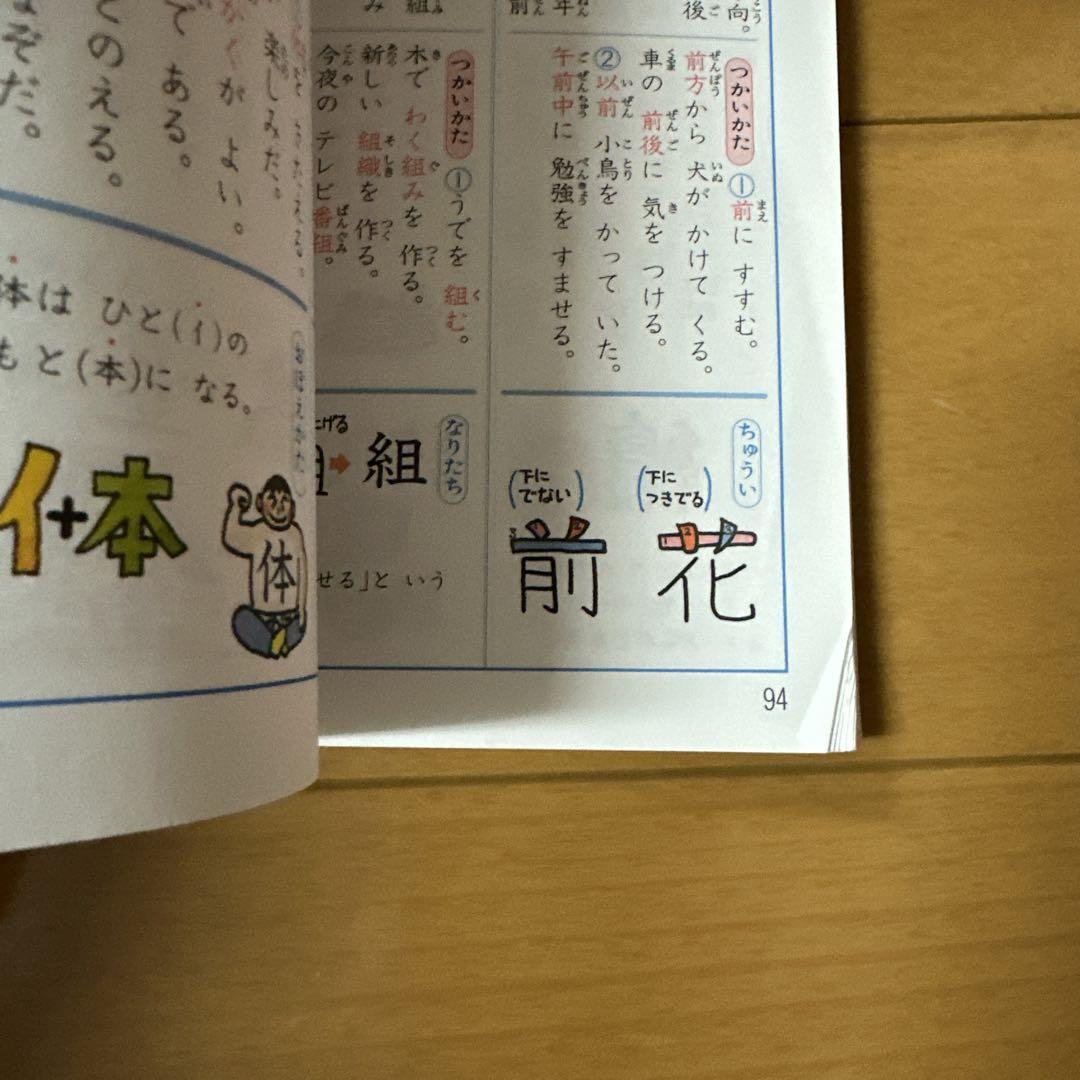 向。
後
年
前
つかいかた ①前に すすむ。
前方から 犬が かけて くる。
車の 前後に 気を つける。
②以前 小鳥を かって いた。
午前中に 勉強を すませる。
ちゅうい
(下に
つきでる)
花
(下に
でない)
前
94
組
み
つかいかた ①うでを 組む。
木で わく組みを 作る。
新しい 組織を 作る。
今夜の テレビ番組。
なりたち
組
せる」と いう
がよい。
で ある。
とのえる。
ぞだ。
おぼえかた
体は ひと(イ)の
もと(本)に なる。
イ+本
体